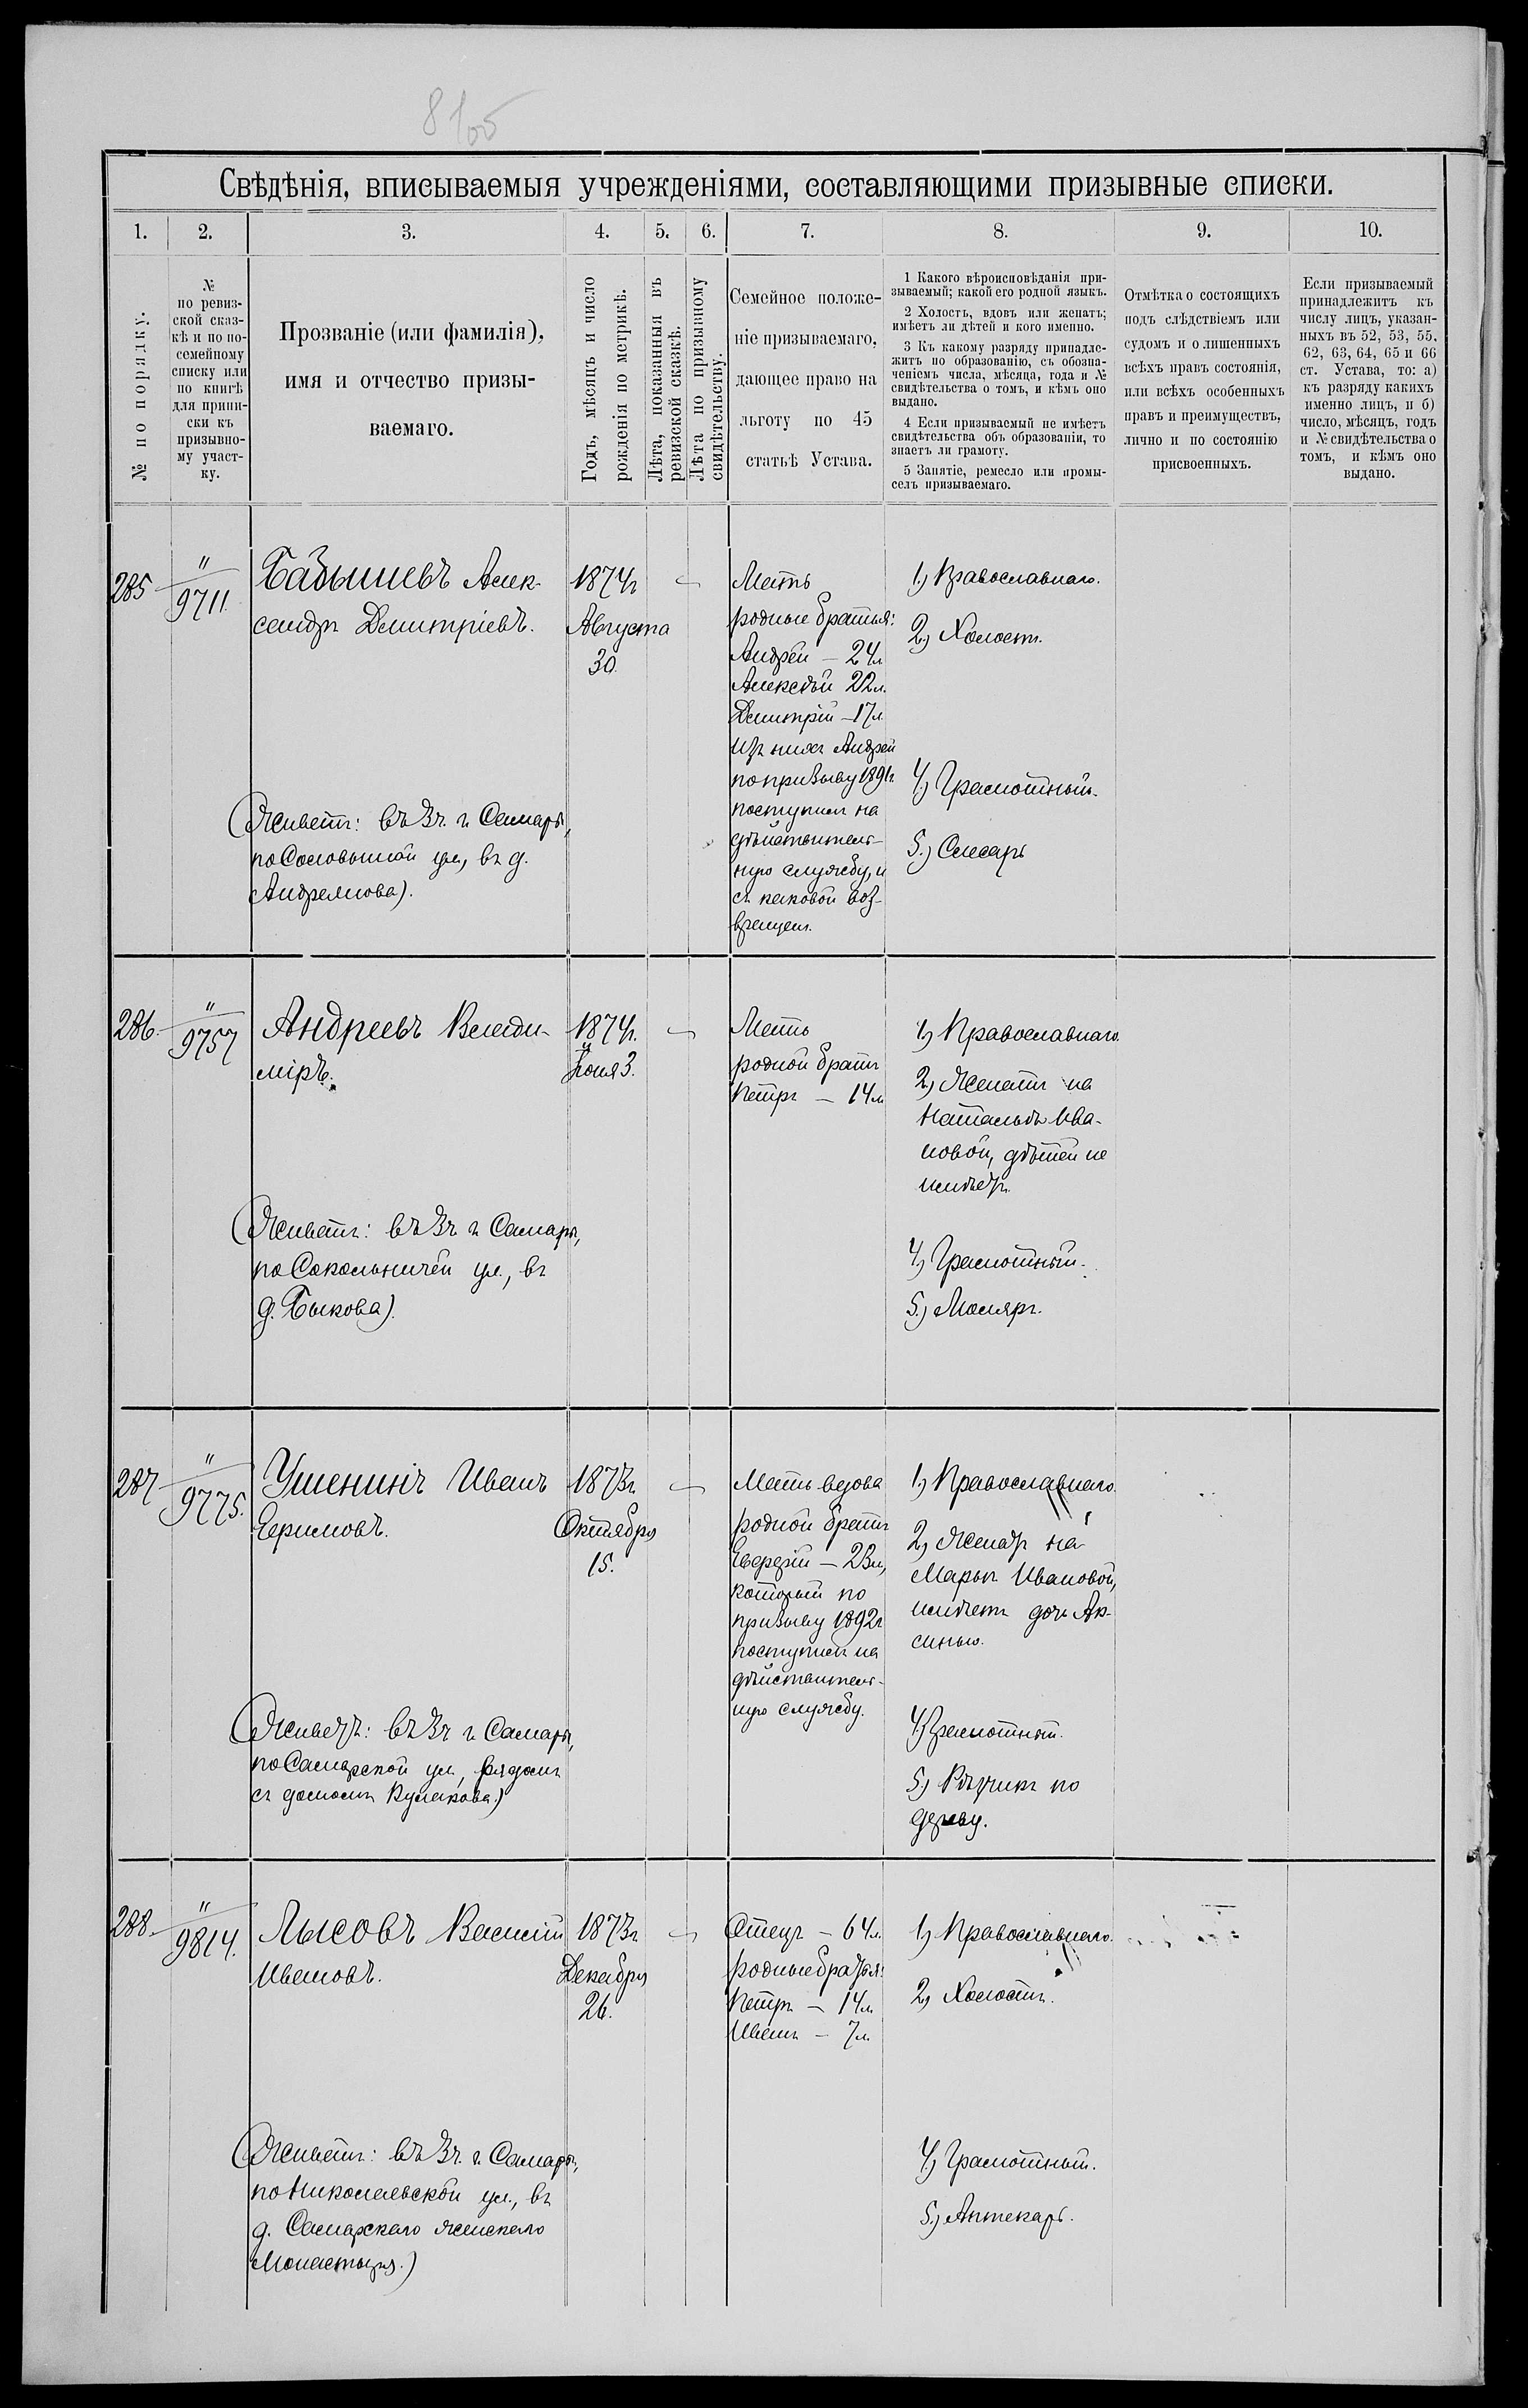 Свѣдѣнія, вписываемыя учрежденіями, составляющими призывные списки.
1. 2. 3. 4. 5. 6. 7. 8. 9. 10.
№ по порядку.
№
по ревиз-
ской сказ-
кѣ и по по-
семейному
списку или
по книгѣ
для припи-
ски къ
призывно-
му участ-
ку.
Прозваніе (или фамилія),
имя и отчество призы-
ваемаго.
Годъ, мѣсяцъ и число
рожденія по метрикѣ.
Лѣта, показанныя въ
ревизской сказкѣ.
Лѣта по призывному
свидѣтельству.
Семейное положе-
ніе призываемаго,
дающее право на
льготу по 45
статьѣ Устава.
1 Какого вѣроисповѣданія при-
зываемый; какой его родной языкъ.
2 Холостъ, вдовъ или женатъ;
имѣетъ ли дѣтей и кого именно.
3 Къ какому разряду принадле-
житъ по образованію, съ обозна-
ченіемъ числа, мѣсяца, года и №
свидѣтельства о томъ, и кѣмъ оно
выдано.
4 Если призываемый не имѣетъ
свидѣтельства объ образованіи, то
знаетъ ли грамоту.
5 Занятіе, ремесло или промы-
селъ призываемаго.
Отмѣтка о состоящихъ
подъ слѣдствіемъ или
судомъ и о лишенныхъ
всѣхъ правъ состоянія,
или всѣхъ особенныхъ
правъ и преимуществъ,
лично и по состоянію
присвоенныхъ.
Если призываемый
принадлежитъ къ
числу лицъ, указан-
ныхъ въ 52, 53, 55,
62, 63, 64, 65 и 66
ст. Устава, то: а)
къ разряду какихъ
именно лицъ, и б)
число, мѣсяцъ, годъ
и № свидѣтельства о
томъ, и кѣмъ оно
выдано.
285
"
9711.
Алек-
сандръ Дмитріевъ.
(Живетъ: въ 3ч. г. Самары,
ул., въ д.
Андреянова).
1874г
Августа
30.
Мать
родные братья:
Андрей – 24л
Алексѣй 22л.
Дмитрій – 17л
изъ нихъ Андрей
по призыву 1891г.
поступилъ на
дѣйствитель-
ную службу, и
съ каковой воз-
вращен.
1.) Православнаго.
2.) Холостъ.
4.) Грамотный.
5.) Слесарь
286.
"
9757
Андреевъ Влади-
міръ.
(Живетъ: въ 3ч г. Самары,
по Сокольничей ул., въ
д. Быкова).
1874г.
Іюля 3.
Мать
родной братъ
Петръ – 14л
1.) Православнаго.
2.) Женатъ на
Натальѣ Ива-
новой, дѣтей не
имѣетъ.
4.) Грамотный.
5.) Маляръ.
287
"
9775.
Ушенинъ Иванъ
(Живетъ: въ 3ч г. Самары,
по Самарской ул., рядомъ
съ домомъ Кулакова.)
1873г
Октября
15.
Мать вдова
родной братъ
– 23л,
который по
призыву 1892г
поступилъ на
дѣйствитель-
ную службу.
1.) Православнаго.
2.) Женатъ на
Марьѣ Ивановой,
имѣетъ дочь Ак-
синью.
4.) Грамотный.
5.) Рѣзчикъ по
дереву.
288.
"
9814.
Лысовъ Василій
Ивановъ.
(Живетъ: въ 3ч. г. Самары,
по Николаевской ул., въ
д. Самарскаго женскаго
Монастыря.)
1873г
Декабря
26.
Отецъ – 64л.
родные братья:
Петръ – 14л
Иванъ – 7л
1.) Православнаго.
2.) Холостъ.
4.) Грамотный.
5.) Аптекарь.